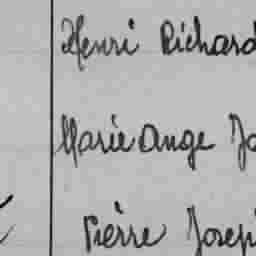 Henri Richard
Marie Ange Jo
Pierre Josep